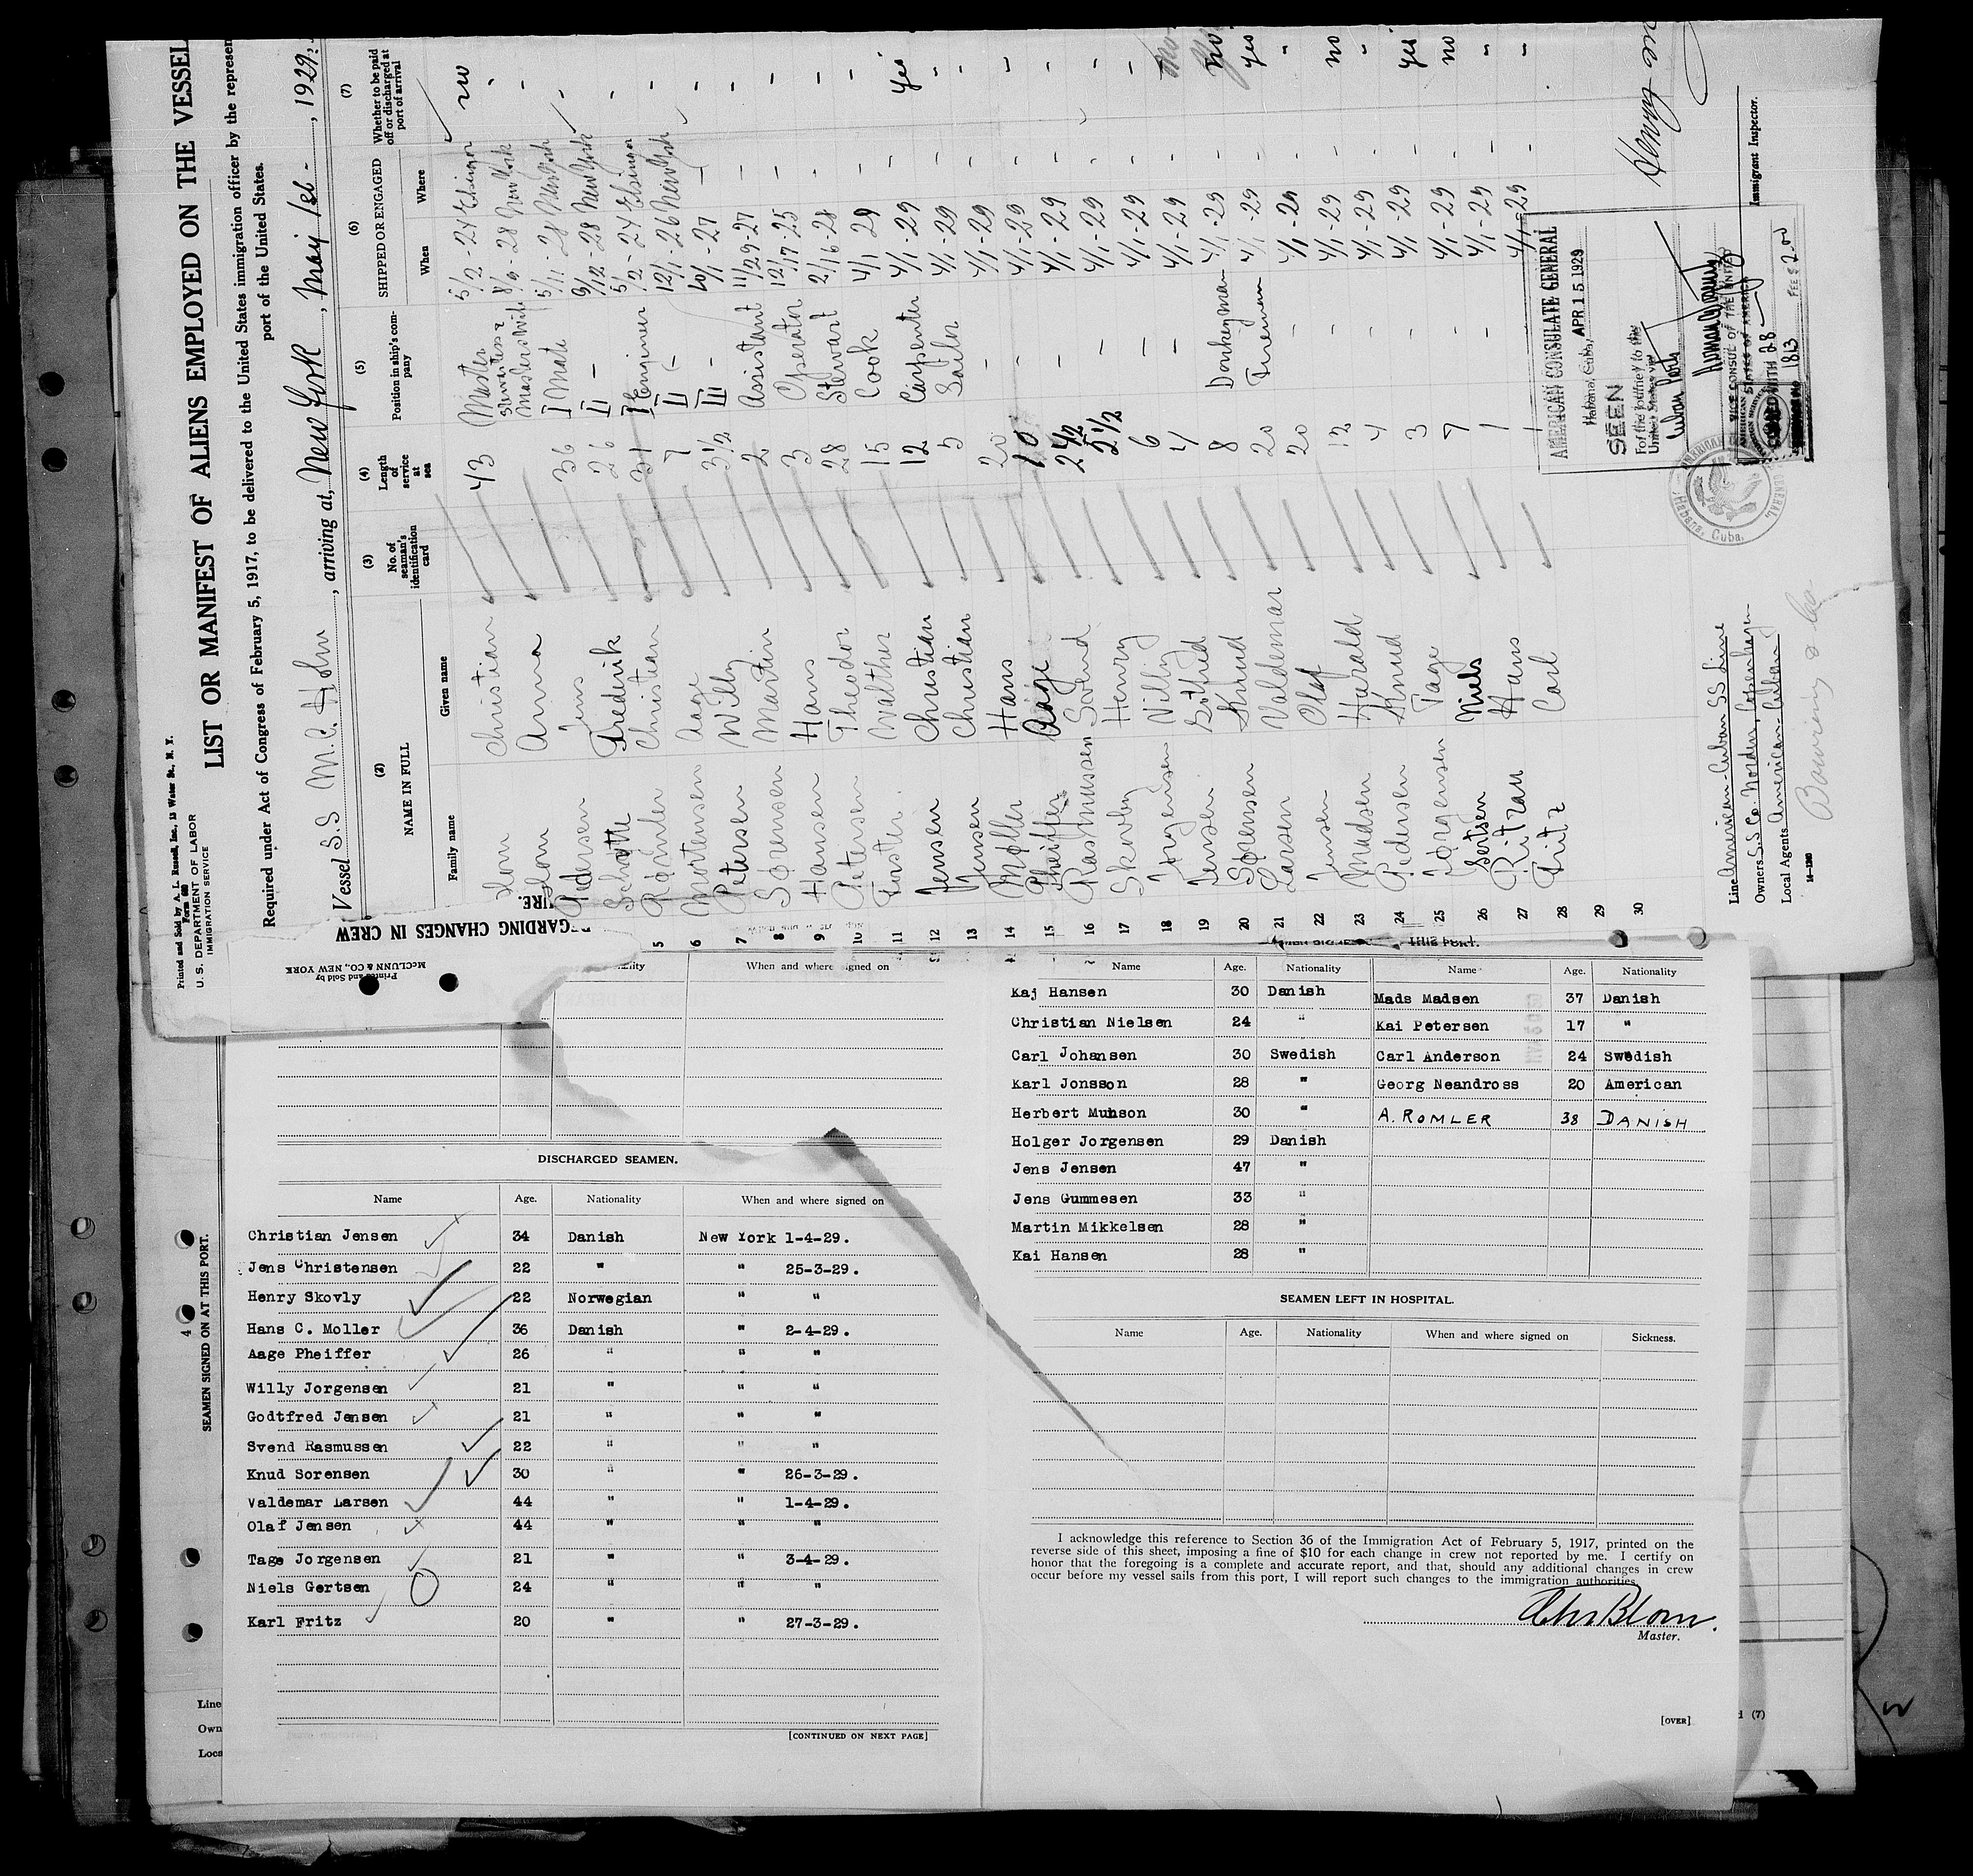 Printed and Sold by A. L. Russell, Inc., 13 Water St., N. Y.
Form 680
U. S. DEPARTMENT OF LABOR
IMMIGRATION SERVICE
LIST OR MANIFEST OF ALIENS EMPLOYED ON THE VESSEL
Required under Act of Congress of February 5, 1917, to be delivered to the United States immigration officer by the represen
port of the United States.
Vessel S.S M.C. Holm, arriving at, New York, May 1st-, 1929.
(2) (3) (4) (5) (6) (7)
NAME IN FULL No. of seaman's identification card Length of service at sea Position in ship's company SHIPPED OR ENGAGED Whether to be paid off or discharged at port of arrival
Family name Given name When Where
Blom Christian 43 Master 5/2-24 Elsinor no
Blom Anna Stewardess & Masters wife 8/9-28 New York -
Pedersen Jens 36 I Mate 5/11-28 New York -
Schøtte Frederik 26 II - 9/12-28 New York -
Rømler Christian 31 I Engineer 5/2-24 Elsinor -
5 Mortensen Aage 7 II - 12/1-26 New York -
6 Petersen Willy 3 1/2 III - 10/1-27 - -
7 Sørensen Martin 2 Assistant 11/29-27 - -
8 Hansen Hans 3 Operator 12/17-25 - -
9 Petersen Theodor 28 Stewart 2/16-28 - -
10 Walther 15 Cook 4/1 29 - -
11 Jensen Christian 12 Carpenter 4/1-29 - yes
12 Jensen Christian 5 Sailor 4/1-29 - -
13 Møller Hans 20 - 4/1-29 - -
14 Pheiffer Aage 10 - 4/1-29 - -
15 Rasmussen Svend 2 1/2 - 4/1-29 - -
16 Skovby Henry 5 1/2 - 4/1-29 - -
17 Jørgensen Willy 6 - 4/1-29 - -
18 Jensen Gotfred 4 - 4/1-29 -
19 Sørensen Knud 8 Donkeyman 4/1-29 - no
20 Larsen Valdemar 20 Fireman 4/1-29 - yes
21 Jensen Olaf 20 - 4/1-29 - -
22 Madsen Harald 12 - 4/1-29 - no
23 Pedersen Knud 4 - 4/1-29 - -
24 Jørgensen Tage 3 - 4/1-29 - yes
25 Gertsen Niels 7 - 4/1-29 - no
26 Ritzau Hans 1 - 4/1-29 - -
27 Fritz Carl 1 4/1-29 - -
28
29
30
AMERICAN CONSULATE GENERAL
Habana, Cuba, APR 15 1929
SEEN
For the journey to the
United States via
Cuban Ports
VICE CONSUL OF THE UNITED
STATES OF AMERICA
1813
FEE $ 2.00
Habana, Cuba.
Henry
Immigrant Inspector.
Line American-Cuban SS Line
Owners S.S. Co. Norden, Copenhagen
Local Agents American-Cuban
Bowring & Co
14-1240
GARDING CHANGES IN CREW
Printed and Sold by
McCLUNN & CO., NEW YORK
When and where signed on
DISCHARGED SEAMEN.
Name Age. Nationality When and where signed on
Christian Jensen 34 Danish New York 1-4-29.
Jens Christensen 22 " " 25-3-29.
Henry Skovly 22 Norwegian " "
Hans C. Moller 36 Danish " 2-4-29.
Aage Pheiffer 26 " " "
Willy Jorgensen 21 " " "
Godtfred Jensen 21 " " "
Svend Rasmussen 22 " " "
Knud Sorensen 30 " " 26-3-29.
Valdemar Larsen 44 " " 1-4-29.
Olaf Jensen 44 " " "
Tage Jorgensen 21 " " 3-4-29.
Niels Gertsen 24 " " "
Karl Fritz 20 " " 27-3-29.
[CONTINUED ON NEXT PAGE]
THIS PORT.
Name Age. Nationality Name Age. Nationality
Kaj Hansen 30 Danish Mads Madsen 37 Danish
Christian Nielsen 24 " Kai Petersen 17 "
Carl Johansen 30 Swedish Carl Anderson 24 Swedish
Karl Jonsson 28 " Georg Neandross 20 American
Herbert Munson 30 " A. ROMLER 38 DANISH
Holger Jorgensen 29 Danish
Jens Jensen 47 "
Jens Gummesen 33 "
Martin Mikkelsen 28 "
Kai Hansen 28 "
SEAMEN LEFT IN HOSPITAL.
Name Age. Nationality When and where signed on Sickness.
I acknowledge this reference to Section 36 of the Immigration Act of February 5, 1917, printed on the
reverse side of this sheet, imposing a fine of $10 for each change in crew not reported by me. I certify on
honor that the foregoing is a complete and accurate report, and that, should any additional changes in crew
occur before my vessel sails from this port, I will report such changes to the immigration authorities.
Chr Blom.
Master.
[OVER]
4
SEAMEN SIGNED ON AT THIS PORT.
Line
Own
Loca
(7)